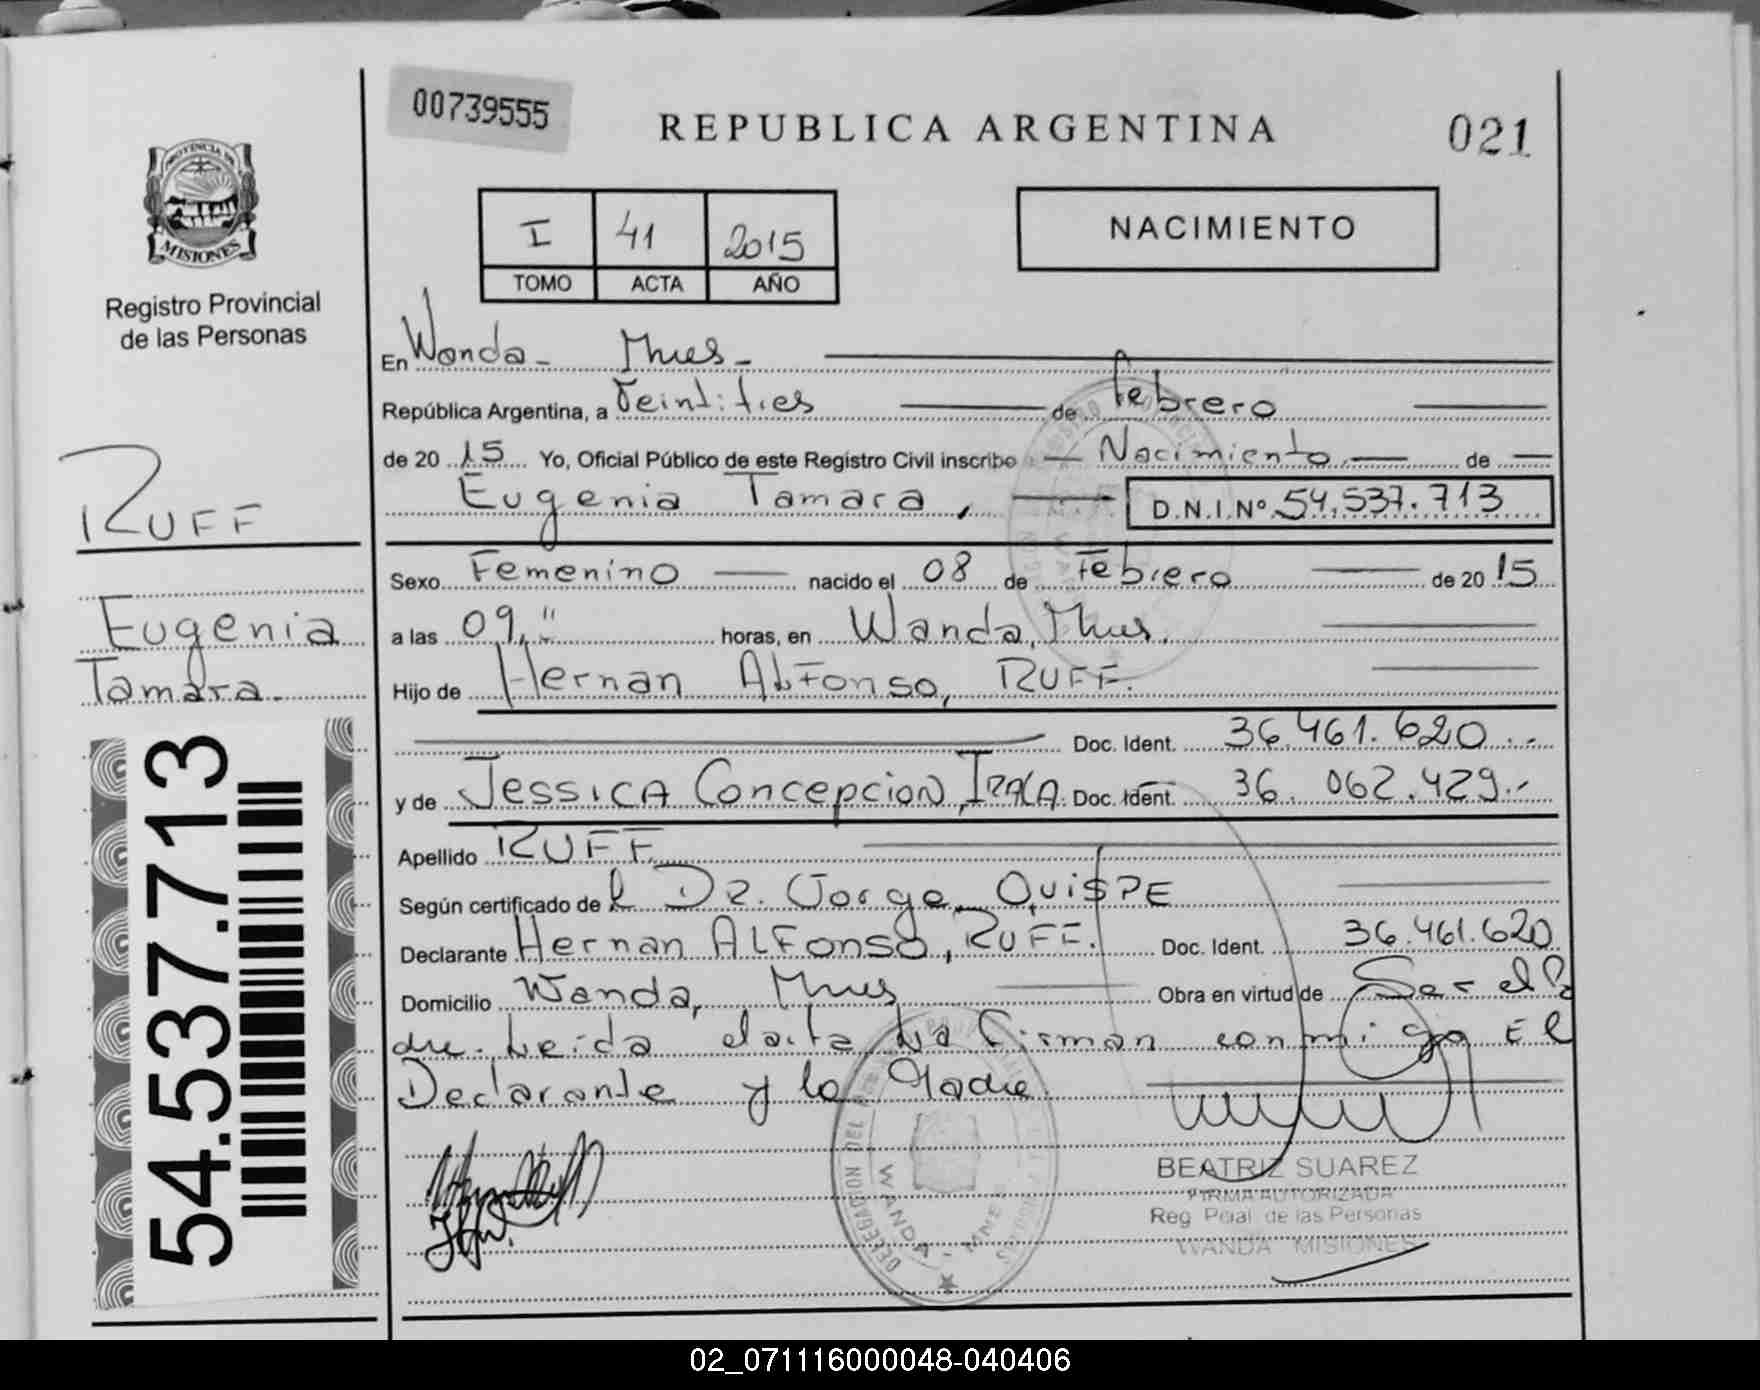 00739555
REPUBLICA ARGENTINA
021
PROVINCIA DE
MISIONES
Registro Provincial
de las Personas
I 41 2015
TOMO ACTA AÑO
NACIMIENTO
En Wanda - Mnes -
República Argentina, a Veintitres de febrero
de 20 15 Yo, Oficial Público de este Registro Civil inscribo Nacimiento de
Eugenia Tamara, D.N.I.Nº 54.537.713
RUFF
Eugenia
Tamara.
54.537.713
Sexo Femenino nacido el 08 de Febrero de 20 15
a las 09," horas, en Wanda, Mnes.
Hijo de Hernan Alfonso, RUFF.
Doc. Ident. 36.461.620.-
y de Jessica Concepcion, Doc. Ident. 36.062.429.-
Apellido RUFF
Según certificado del Dr. Jorge QuisPE
Declarante Hernan ALFonso, RUFF. Doc. Ident. 36.461.620
Domicilio Wanda, Mnes Obra en virtud de Ser el
Leida el acta La Firman conmigo El
Declarante y la Madre.
DELEGACION DEL
WANDA - MNES
BEATRIZ SUAREZ
FIRMA AUTORIZADA
Reg Pcial de las Personas
WANDA MISIONES
02_071116000048-040406